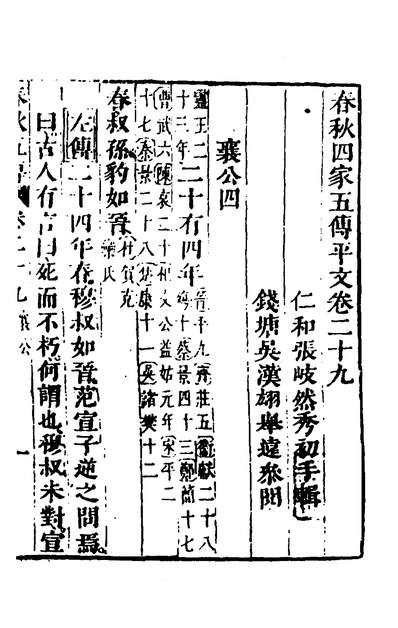 春秋四家五傳平文卷二十九
仁和張岐然秀初手輯
錢塘吳漢翊舉遠參閱
襄公四
靈王二十三年二十有四年晉平九齊莊五衛獻二十八殤十蔡景四十三鄭簡十七
曹武六陳哀二十杞文公益姑元年宋平二十七秦景二十八楚康十一吳諸樊十二
春叔孫豹如晉杜賀克欒氏
左傳二十四年春穆叔如晉范宣子逆之問焉
曰古人有言曰死而不朽何謂也穆叔未對宣
卷二十九 襄公 一